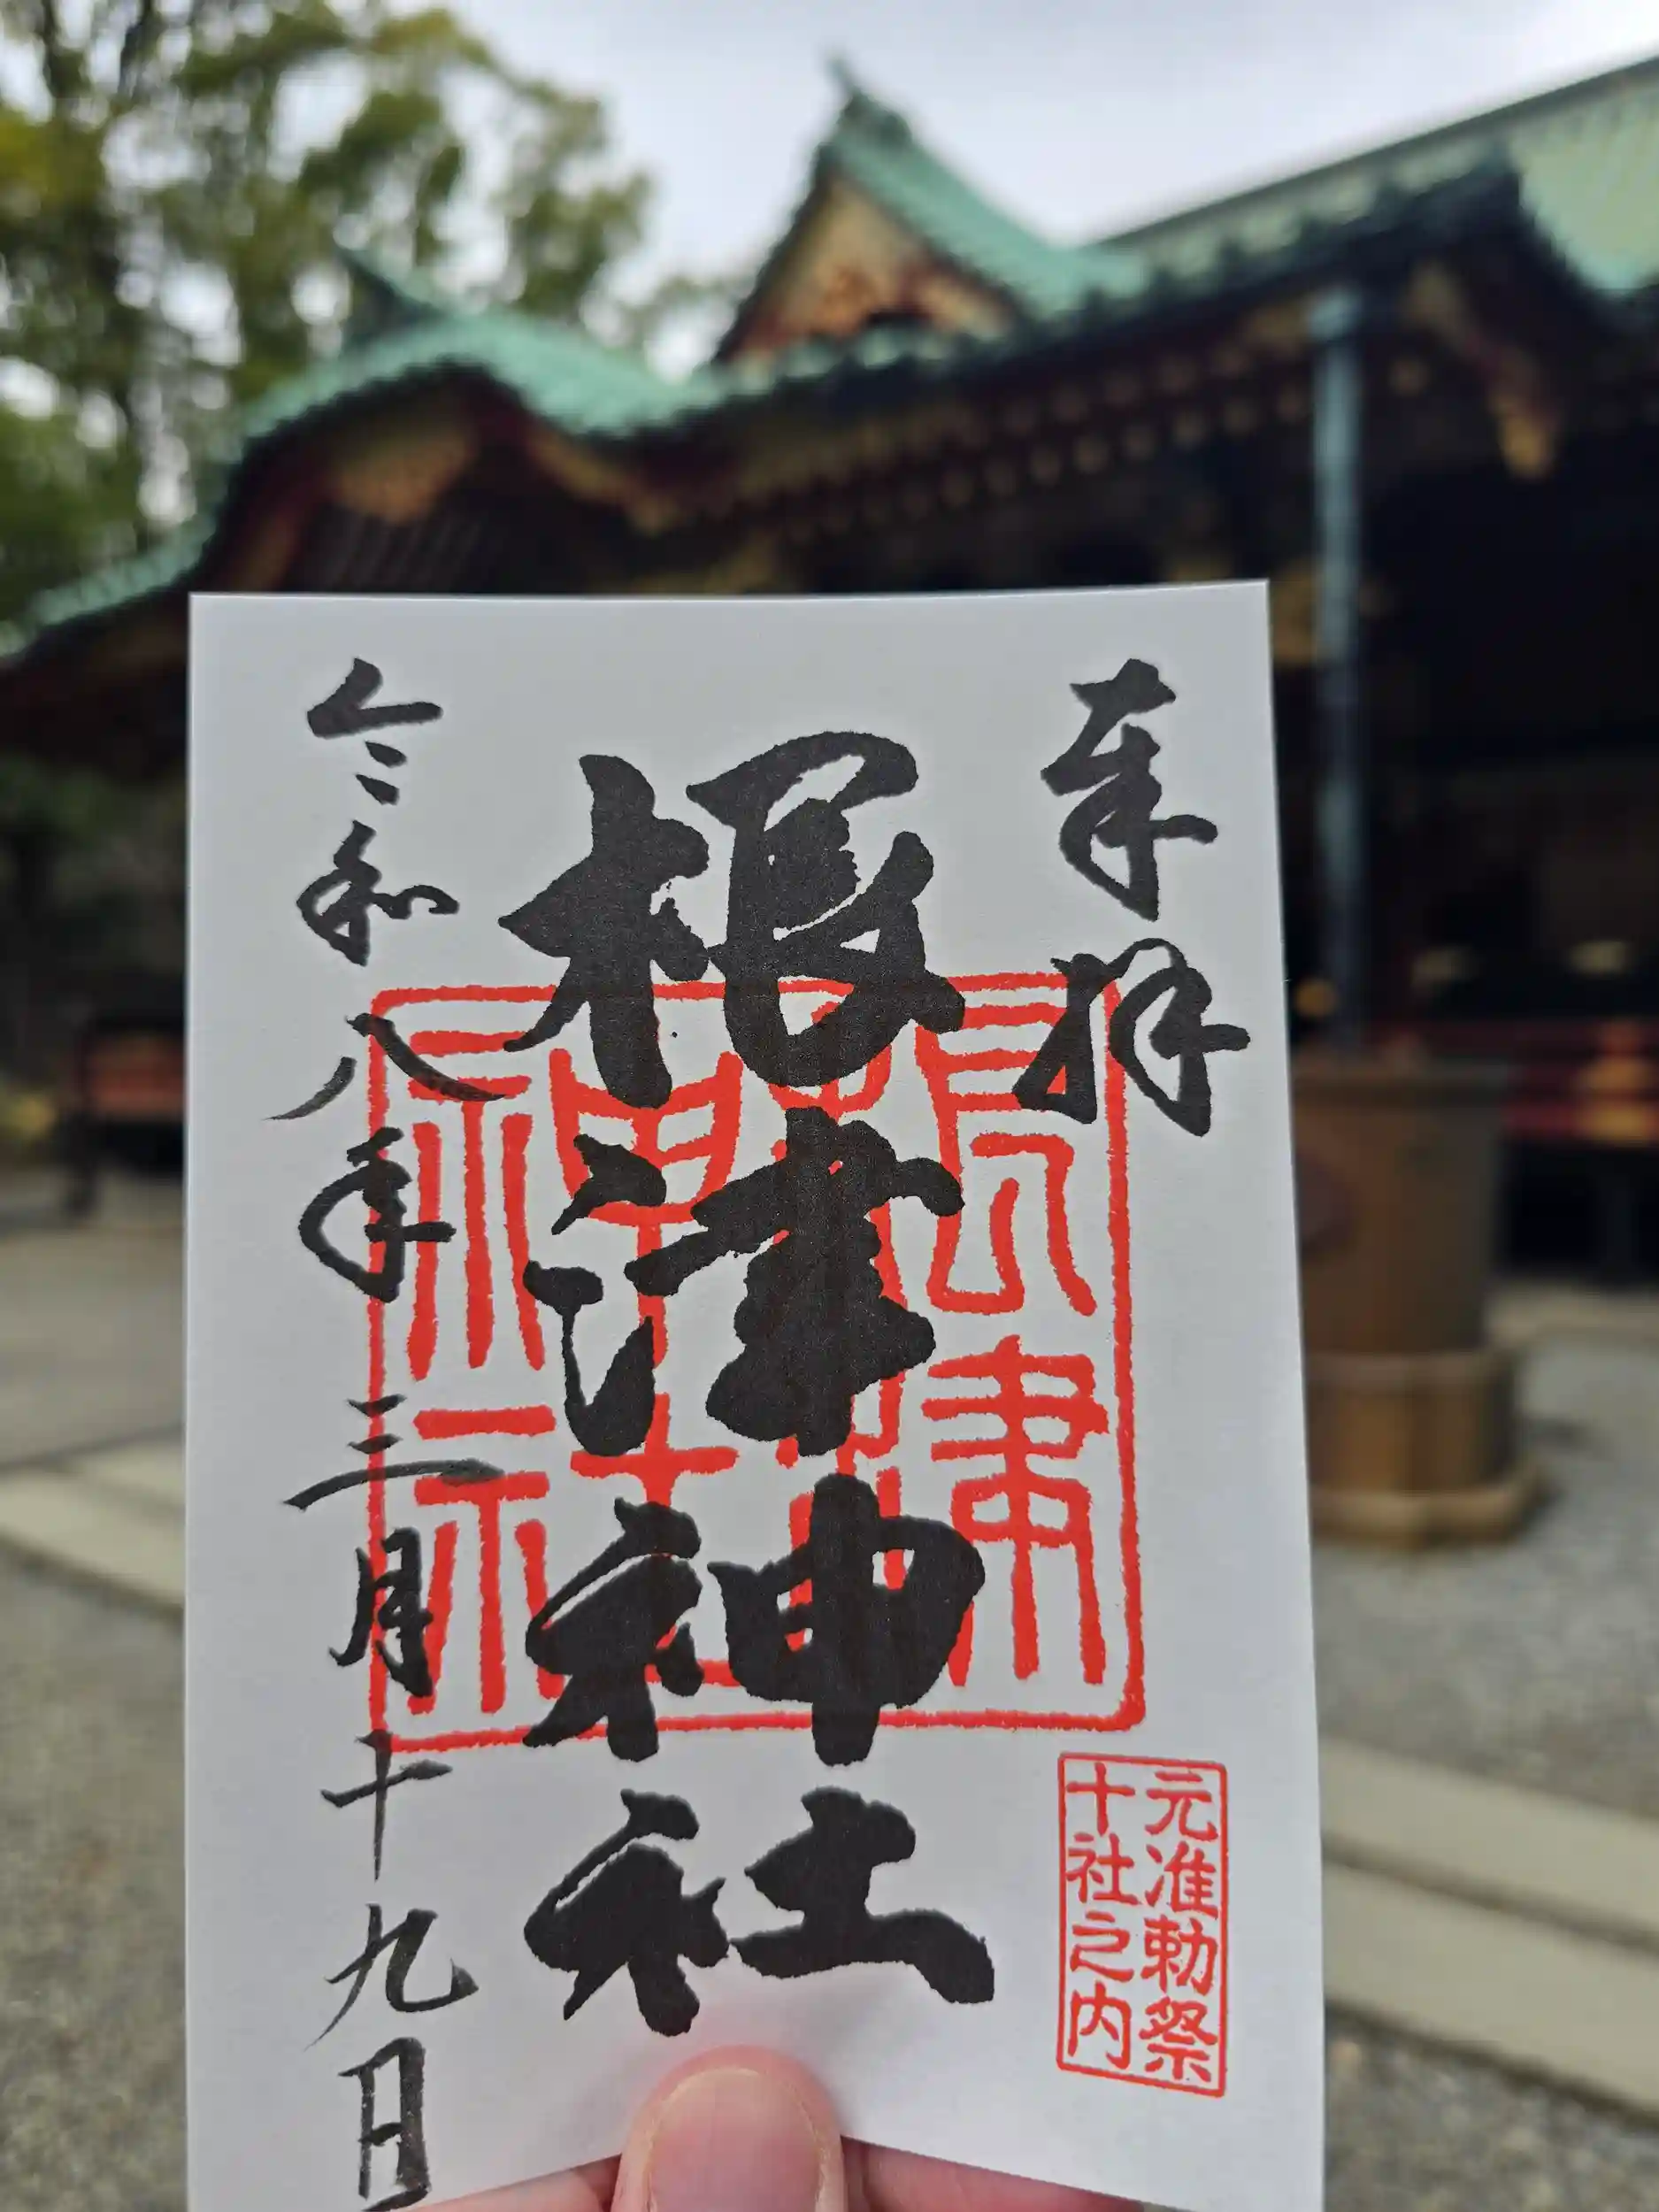 奉拝
根津神社
令和八年三月十九日
根津
神社
元准勅祭
十社之内